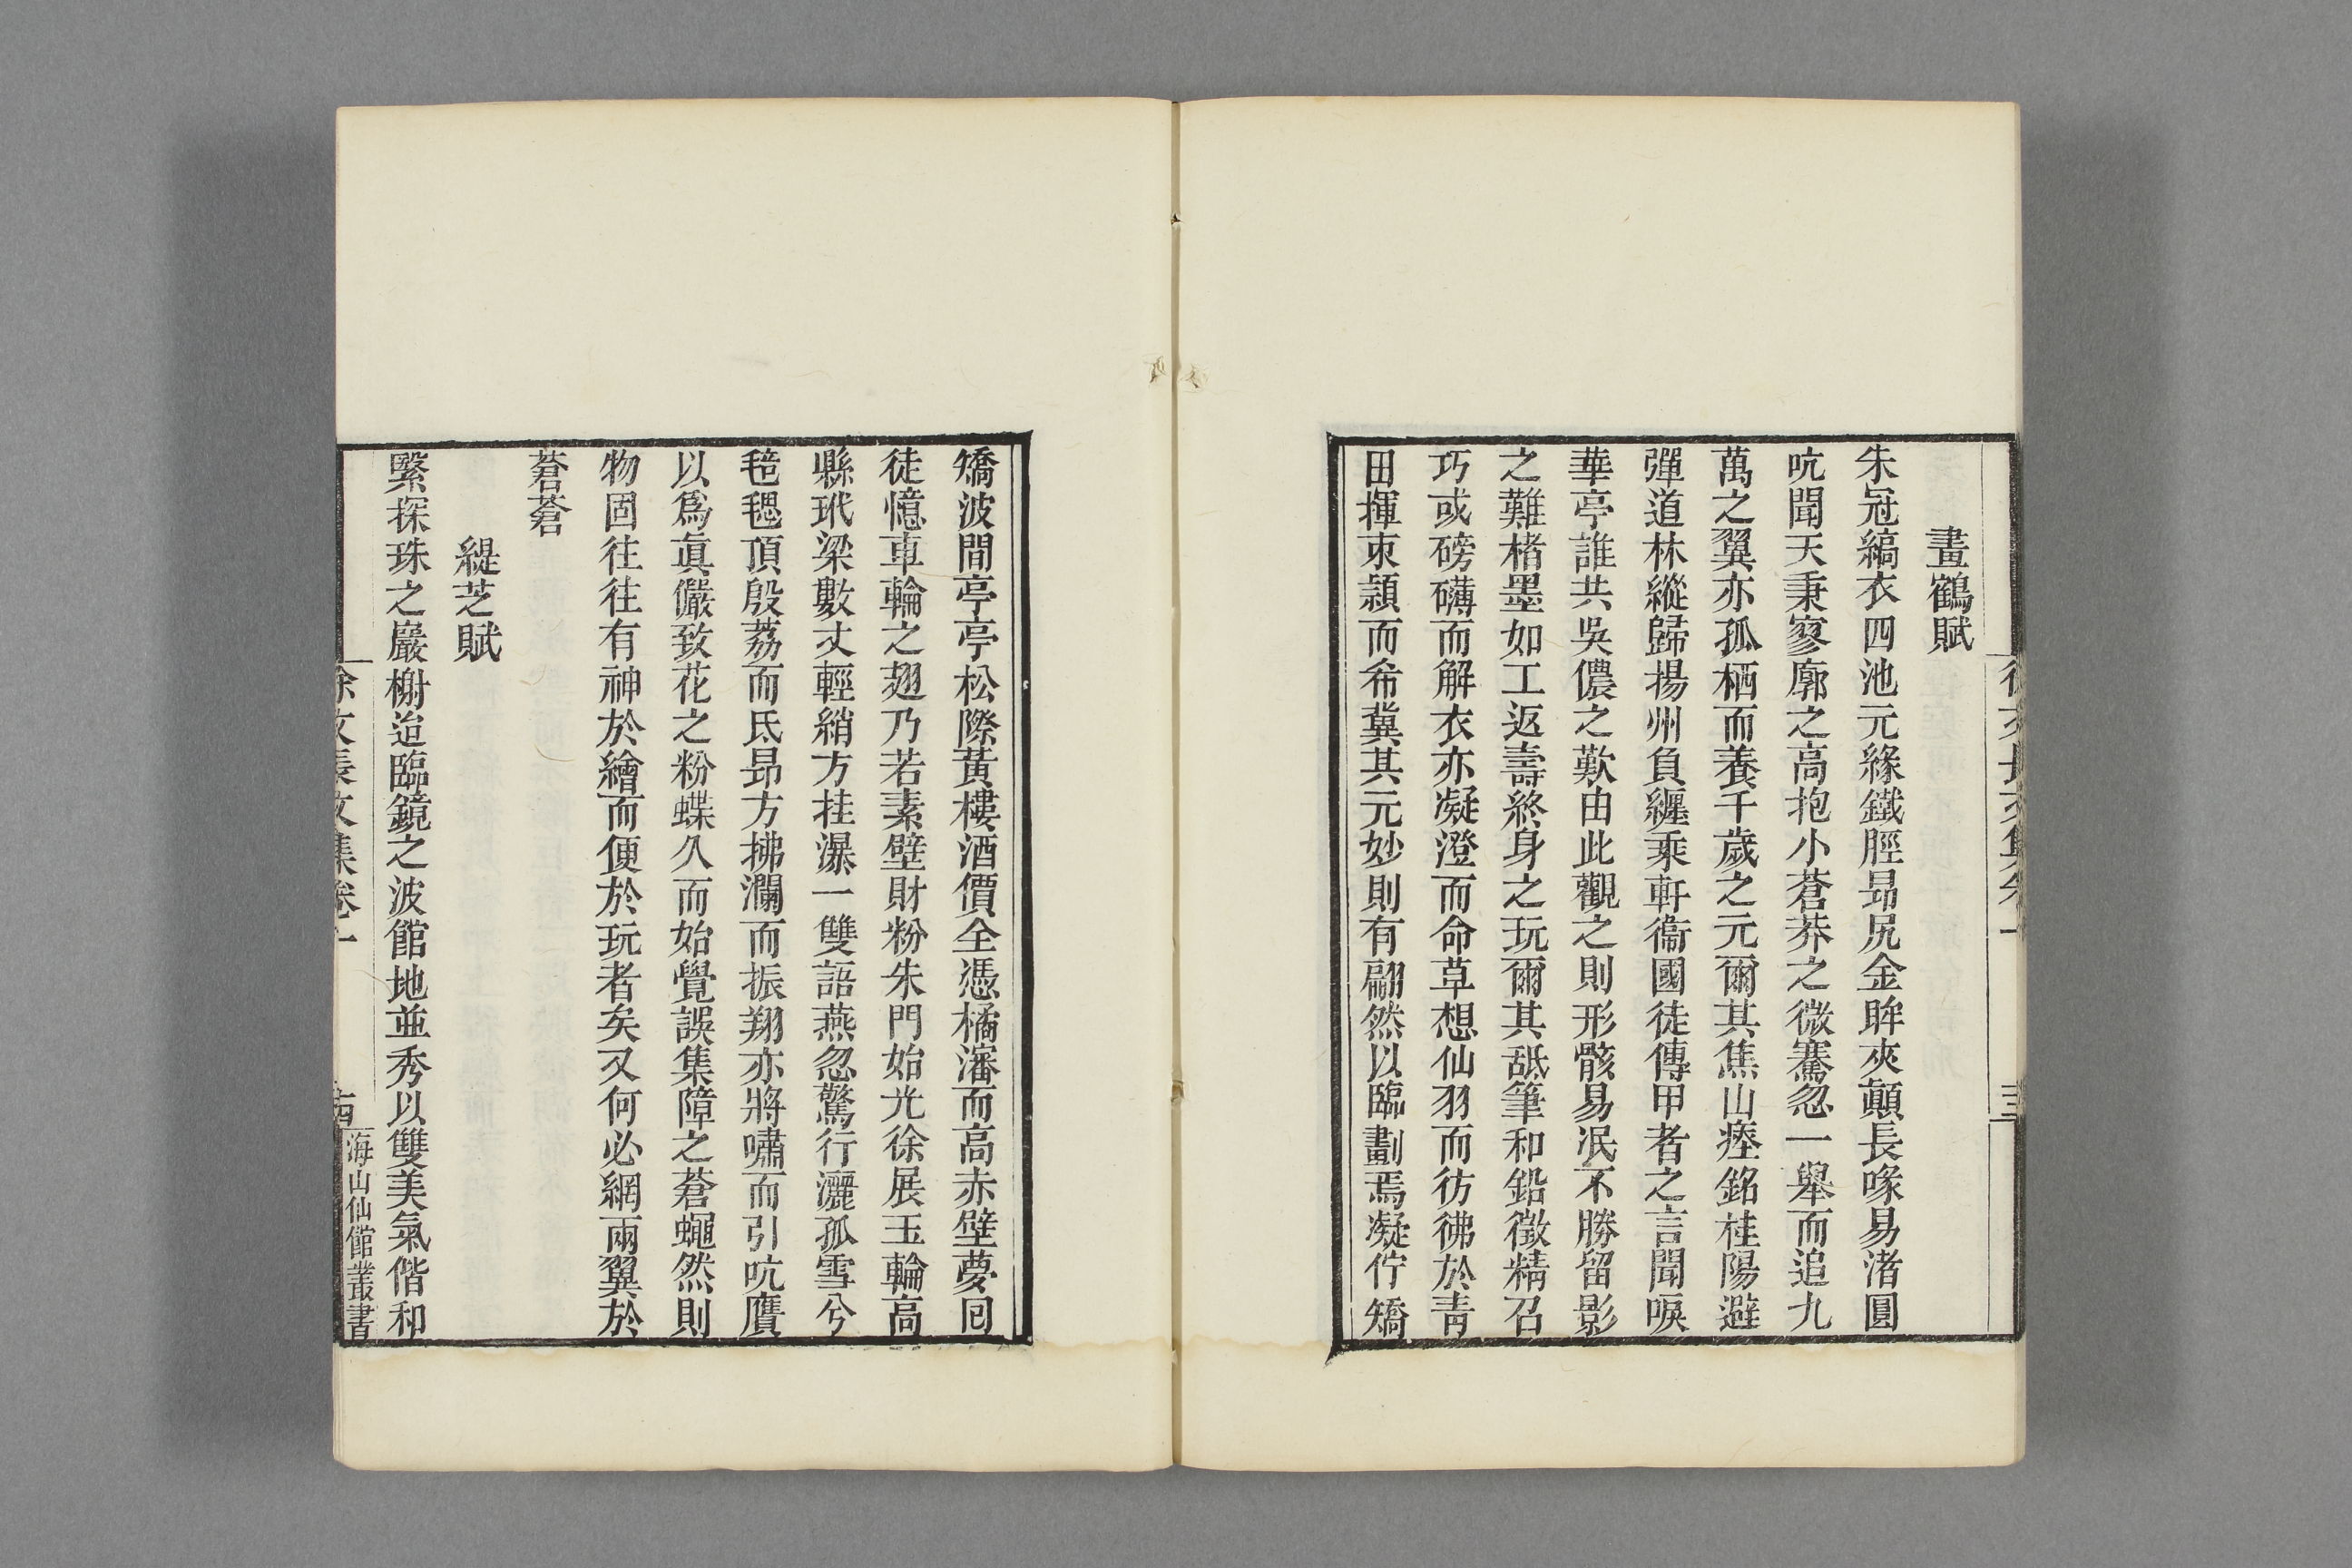 畫鶴賦
朱冠縞衣四池元緣鐵脛昻尻金眸夾顚長喙易渚圓
吭聞天秉寥廓之高抱小蒼莽之微騫忽一舉而追九
萬之翼亦孤栖而養千歲之元爾其焦山瘞銘桂陽避
彈道林縱歸揚州負纏乘軒衞國徒傳甲者之言聞唳
華亭誰共吳儂之歎由此觀之則形骸易泯不勝留影
之難楮墨如工返壽終身之玩爾其舐筆和鉛徵精召
巧或磅礴而解衣亦凝澄而命草想仙羽而彷彿於靑
田揮柬頴而希冀其元妙則有翩然以臨劃焉凝佇矯
矯波間亭亭松際黃樓酒價全憑橘瀋而高赤壁夢囘
徒憶車輪之翅乃若素壁財粉朱門始光徐展玉輪高
縣玳梁數丈輕綃方挂瀑一雙語燕忽驚行灑孤雪兮
毰毸頂殷荔而氐昻方拂瀾而振翔亦將嘯而引吭贋
以爲眞儼致花之粉蝶久而始覺誤集障之蒼蠅然則
物固往往有神於繪而便於玩者矣又何必網兩翼於
蒼蒼
緹芝賦
緊探珠之巖榭迨臨鏡之波館地並秀以雙美氣偕和
徐文長文集卷一
海山仙館叢書